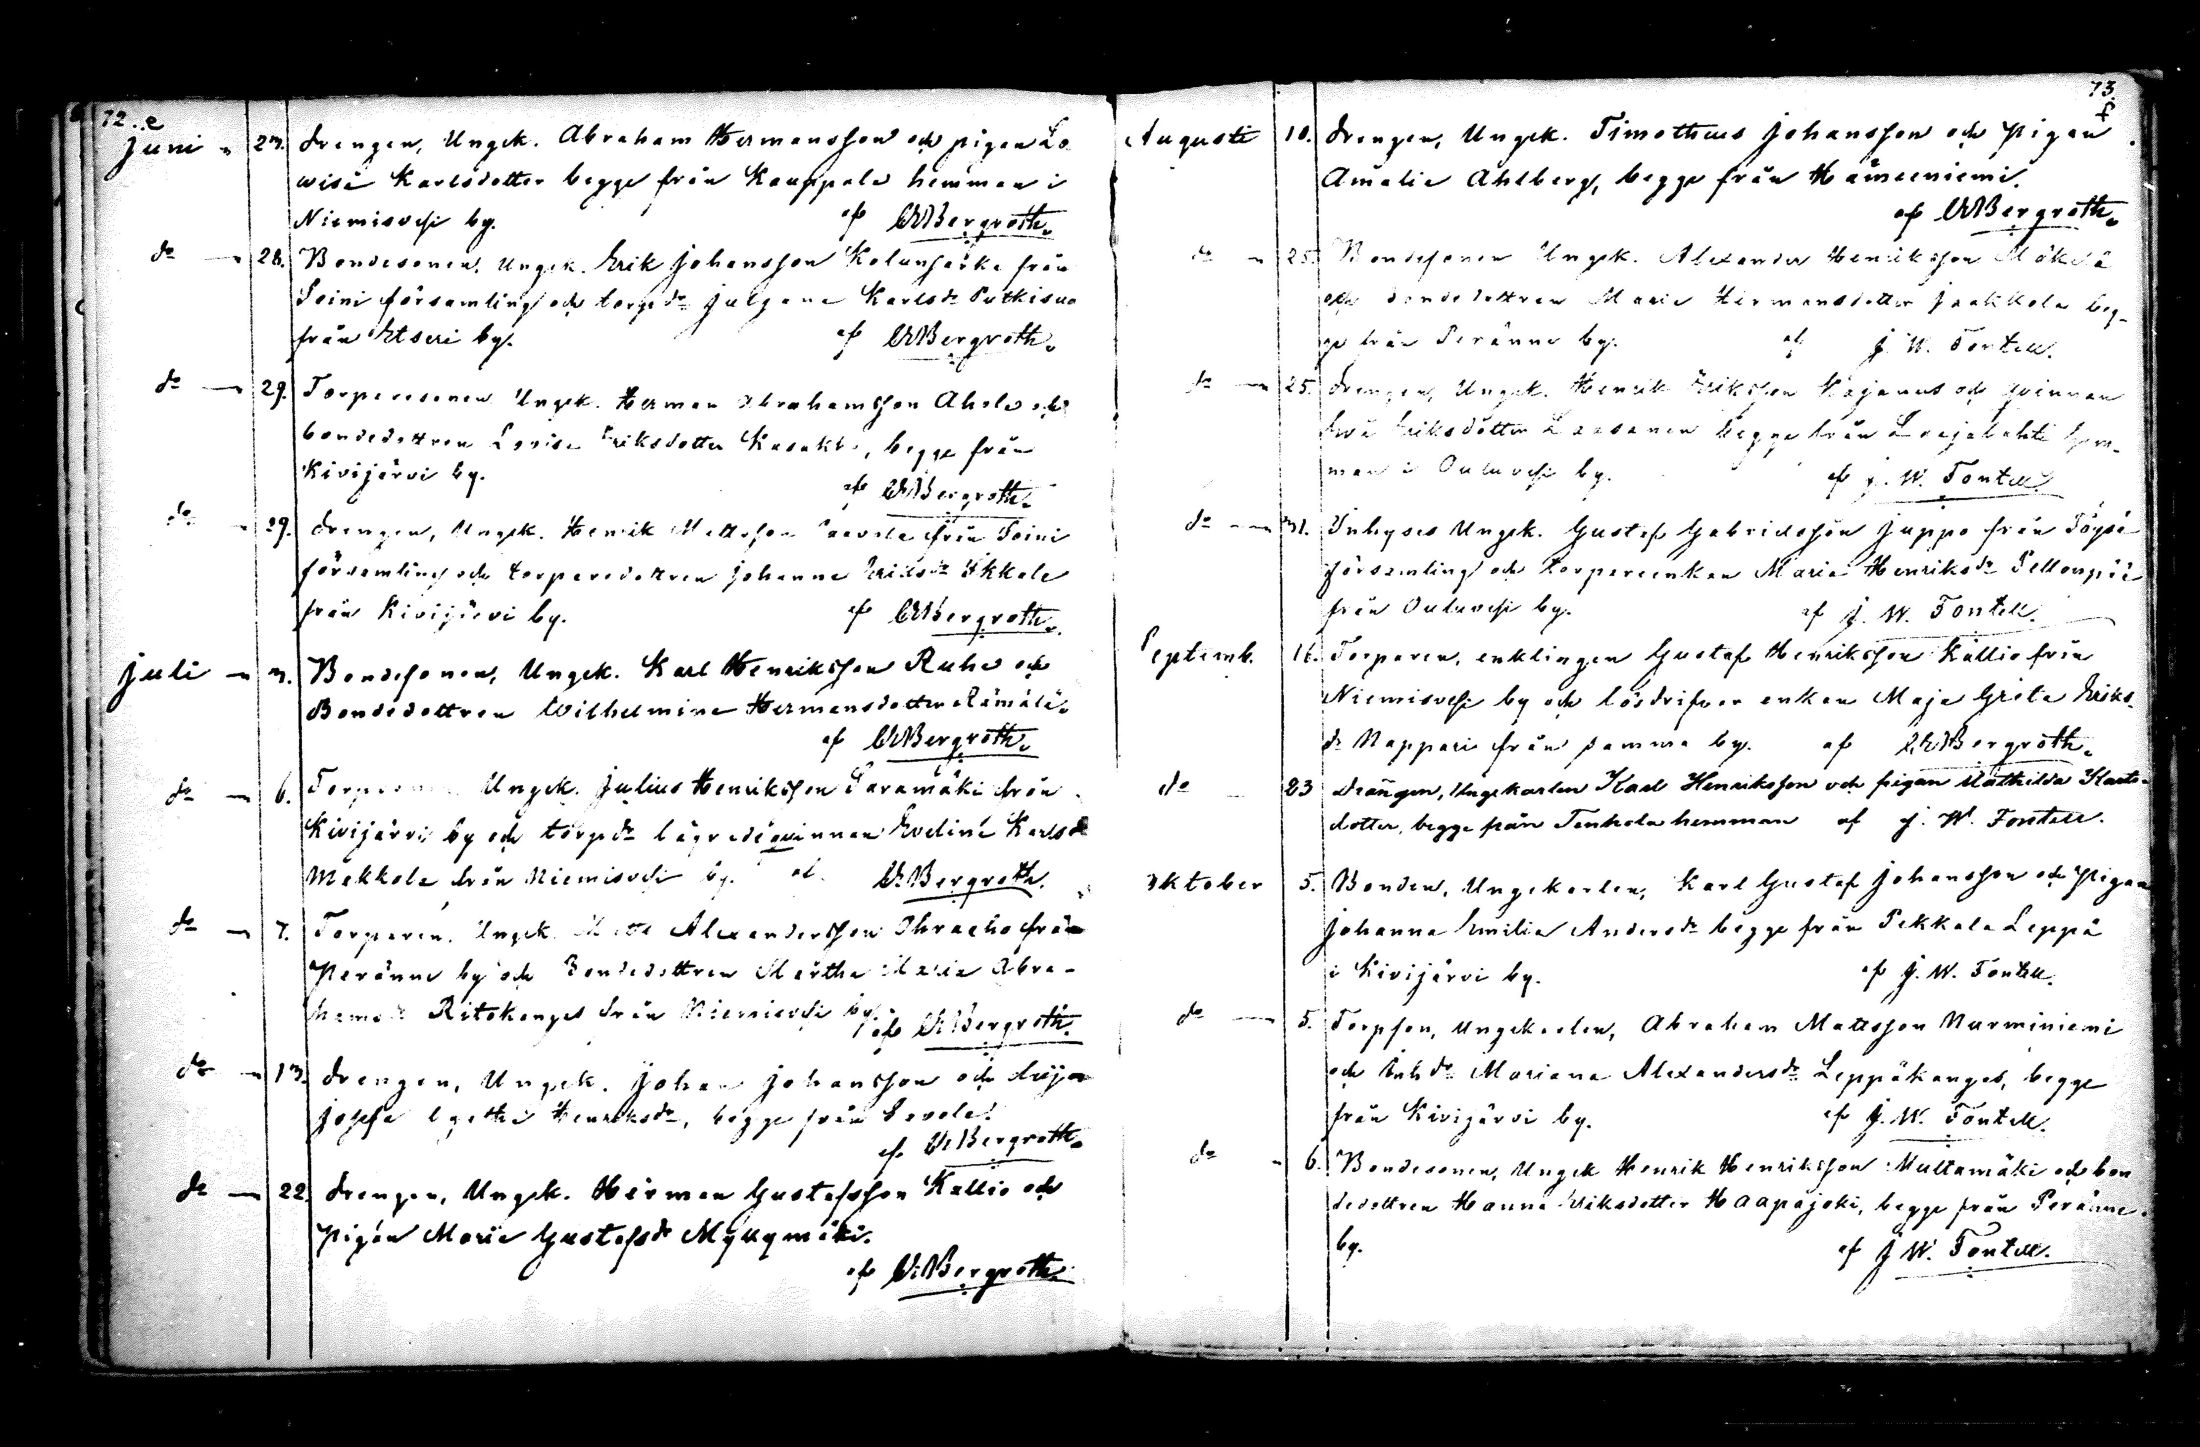 72. e
Juni 27. Drengen, Ungk. Abraham Hermansson och pigan Lo
wisa Karlsdotter begge från Kauppala hemman i
Niemisvesi by. af CABergroth.
do 28. Bondesonen, Ungk. Erik Johansson Kolunsarka från
Soini församling och torpdr Julgana Karlsdr Putkisuo
från Etseri by. af CABergroth.
do 29. Torparesonen Ungk. Herman Abrahamsson Ahola och
bondedottren Lovisa Eriksdotter, begge från
Kivijärvi by. af CABergroth.
do 29. Drengen, Ungk. Henrik Mattsson från Soini
församling och torparedottren Johanna Eriksdr Ukkola
från Kivijärvi by. af CABergroth.
Juli 3. Bondesonen, Ungk. Karl Henriksson Ruha och
Bondedottren Wilhelmina Hermansdotter Rämälä.
af CABergroth.
do 6. Ungk. Julius Henriksson Saramäki från
Kivijärvi by och torpdr lägrade qvinnan Evelina Karlsdr
Mekkola från Niemisvesi by. af CABergroth.
do 7. Torparen, Ungk. Matts Alexandersson Ohraaho från
Peränne by och Bondedottren Martha Maria Abra-
hamsdr Ritokangas från Niemisvesi by. af CABergroth.
do 13. Drengen, Ungk. Johan Johansson och
Josefa Agatha Henriksdr, begge från
af CABergroth.
do 22. Drengen, Ungk. Herman Gustafsson Kallio och
Pigan Maria Gustafsdr Myllymäki.
af CABergroth.
73.
f
Augusti 10. Drengen, Ungk. Timotheus Johansson och Pigan
Amalia Ahlberg, begge från Hämeeniemi.
af CABergroth.
do 25. Bondesonen Ungk. Alexander Henriksson Mäkelä
och bondedottren Maria Hermansdotter Jaakkola beg-
ge från Peränne by. af J. W. Fontell.
do 25. Drengen, Ungk. Henrik Eriksson Kajanus och qvinnan
Eva Eriksdotter Laasanen begge från hem-
man i Ouluvesi by. af J. W. Fontell.
do 31. Inhyses Ungk. Gustaf Gabrielsson Juppo från Töysä
församling och torpareenkan Maria Henriksdr Peltonpää
från Ouluvesi by. af J. W. Fontell.
Septemb. 16. Torparen, enklingen Gustaf Henriksson Kallio från
Niemisvesi by och lösdrifver enkan Maja Greta Eriks
dr Nappari från samma by. af CABergroth.
do 23 Drängen, Ungekarlen Karl Henriksson och pigan Mathilda Karls-
dotter, begge från Tenhola hemman af J. W. Fontell.
Oktober 5. Bonden, Ungekarlen, Karl Gustaf Johansson och Pigan
Johanna Emilia Andersdr begge från Pekkala Leppä
i Kivijärvi by. af J. W. Fontell.
do 5. Torpson, Ungekarlen, Abraham Mattsson Nurminiemi
och Inhdr Mariana Alexandersdr Leppäkangas, begge
från Kivijärvi by. af J. W. Fontell.
do 6. Bondesonen, Ungk Henrik Henriksson Multamäki och bon
dedottren Hanna Eriksdotter Haapajoki, begge från Peränne
by. af J W. Fontell.